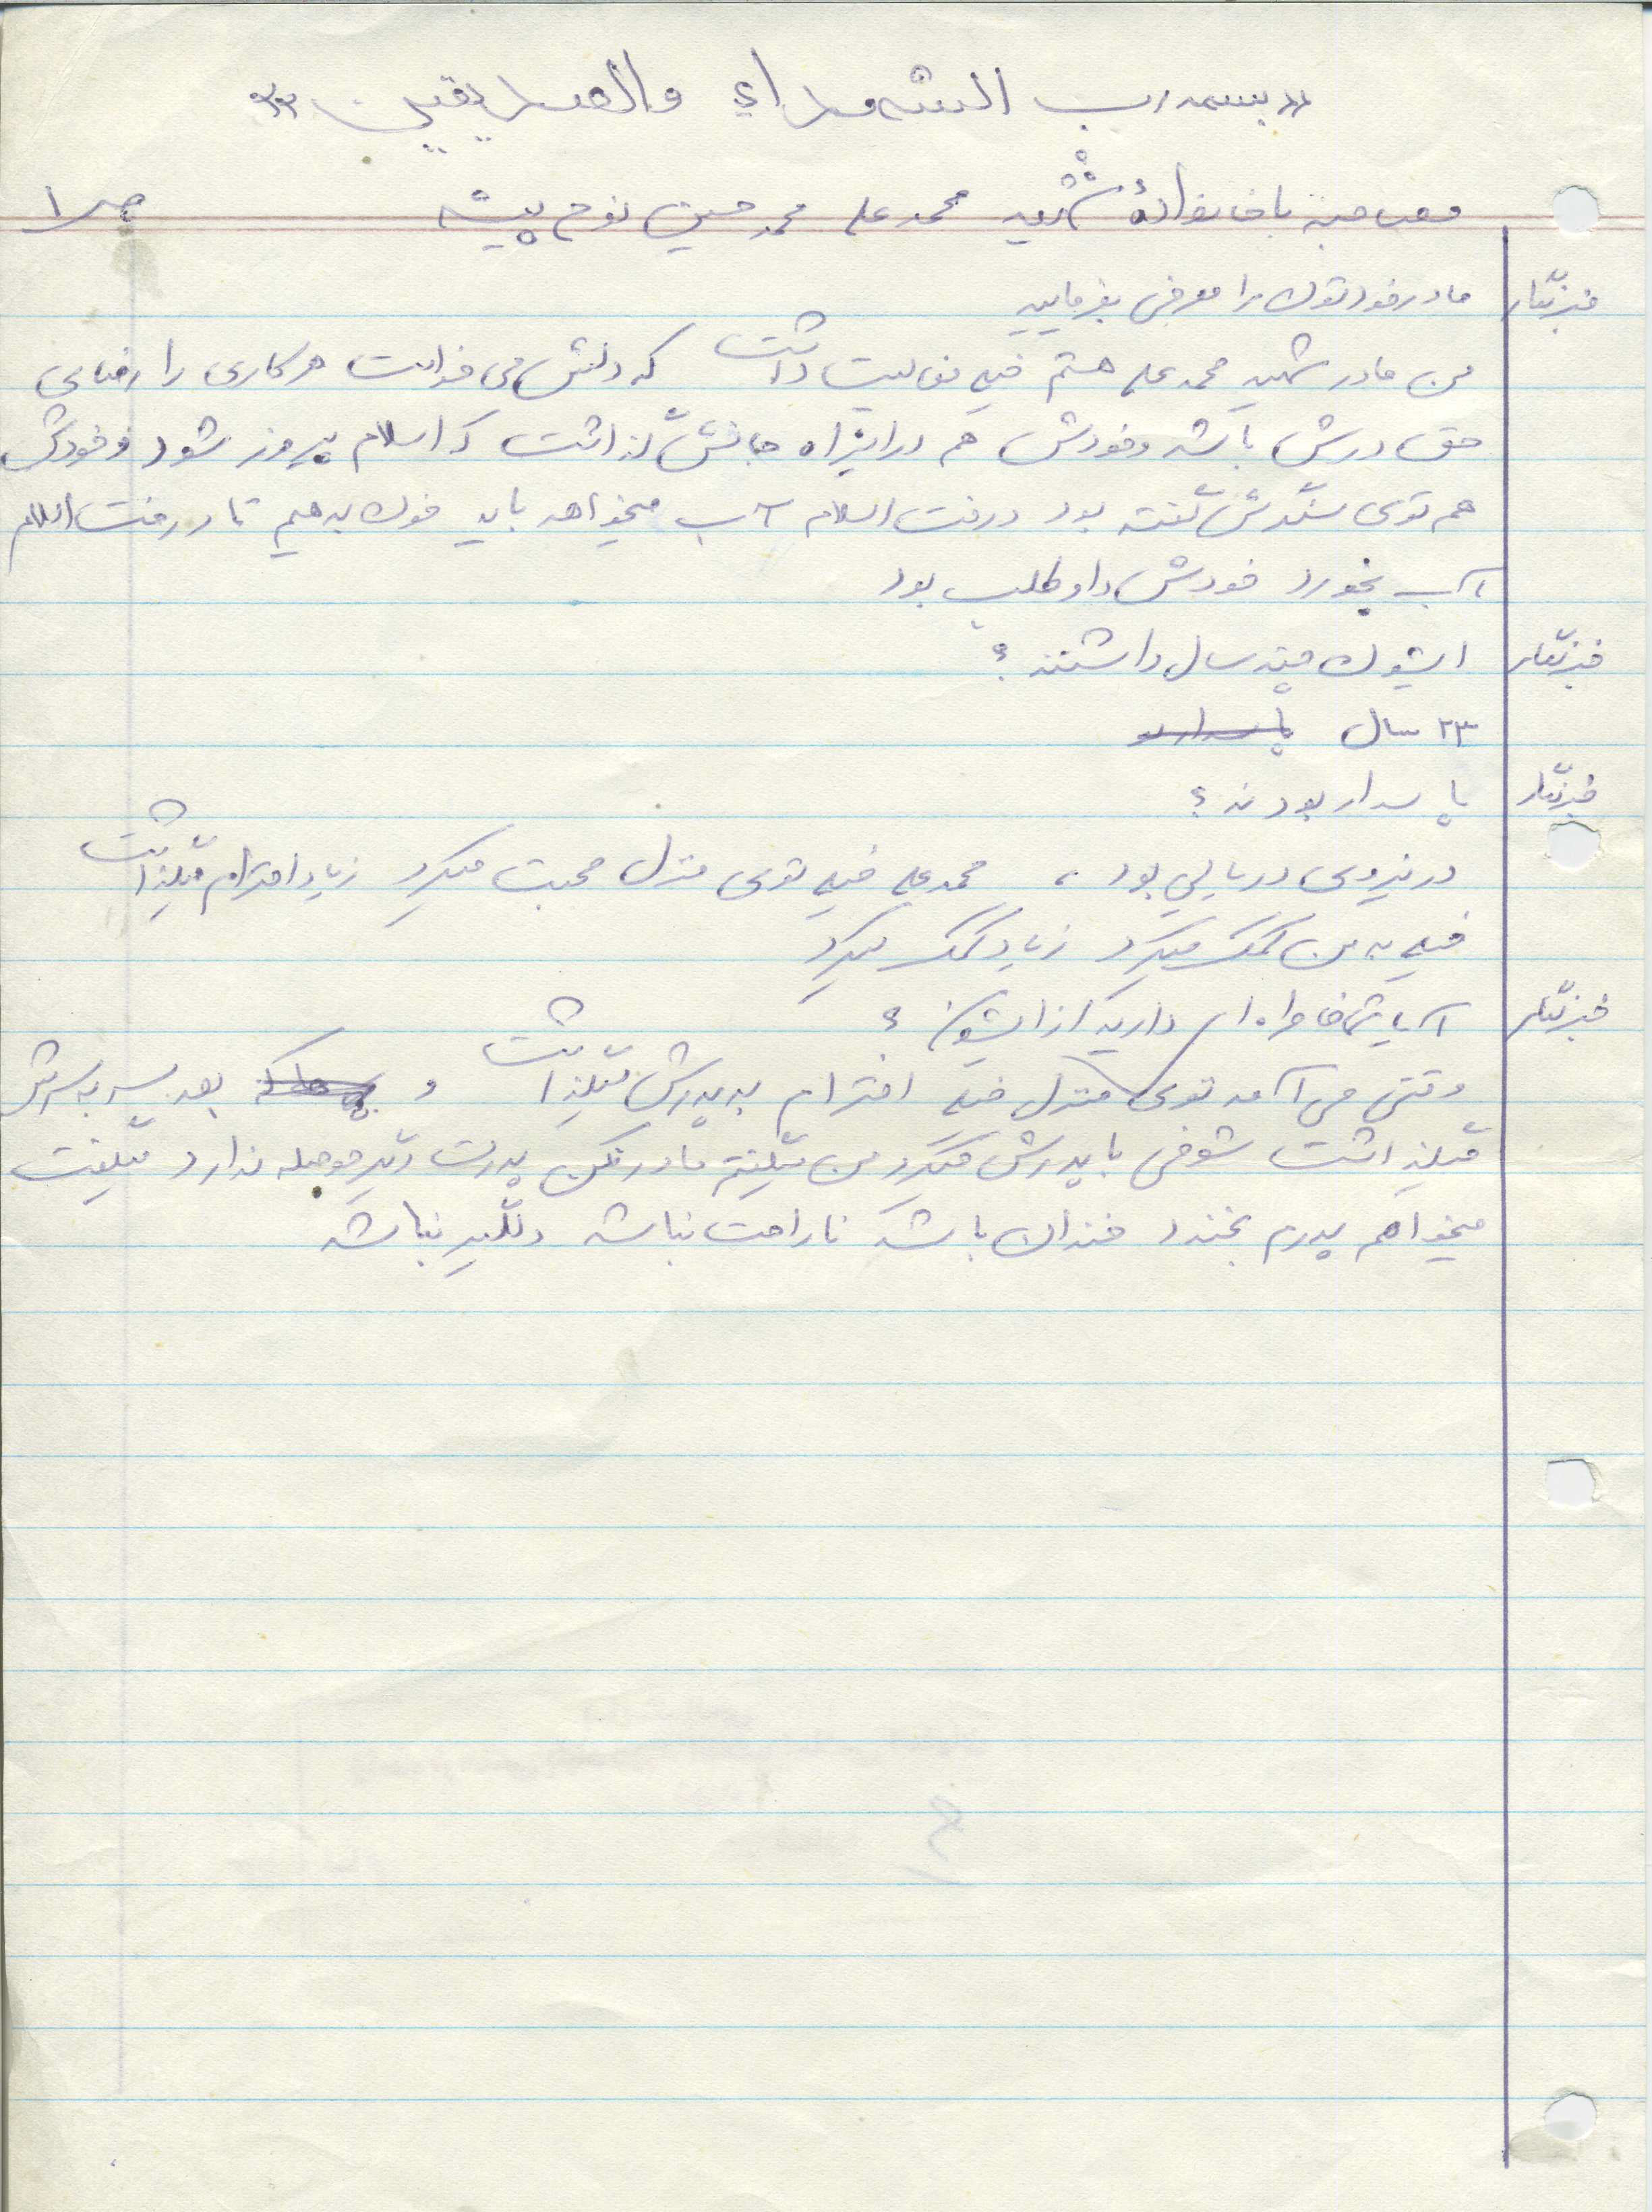 «بسمه رب الشهداء والصدیقین»
مصاحبه با خانوادهٔ شهید محمد علی محمد حسین نوح پیشه ص ۱
خبرنگار مادر خودتون را معرفی بفرمایید
من مادر شهید محمد علی هستم خیلی فعالیت داشت که دلش می خواست هر کاری را رضای
حق درش باشد و خودش هم در این راه جانش گذاشت که اسلام پیروز شود و خودش
هم توی سنگرش گفته بود درخت اسلام آب میخواهد باید خون بدهیم تا درخت اسلام
آب بخورد خودش داوطلب بود
خبرنگار ایشون چند سال داشتند ؟
۲۳ سال
خبرنگار پاسدار بودند ؟
در نیروی دریایی بود ، محمد علی خیلی توی منزل محبت میکرد زیاد احترام میگذاشت
خیلی به من کمک میکرد زیاد کمک میکرد
خبرنگار آیا شما خاطره ای دارید از ایشون ؟
وقتی می آمد توی منزل خیلی احترام به پدرش میگذاشت و بعد سر به سرش
میگذاشت شوخی با پدرش میکرد من میگفتم مادر نکن پدرت دیگر حوصله ندارد میگفت
میخواهم پدرم بخندد خندان باشد ناراحت نباشد دلگیر نباشد